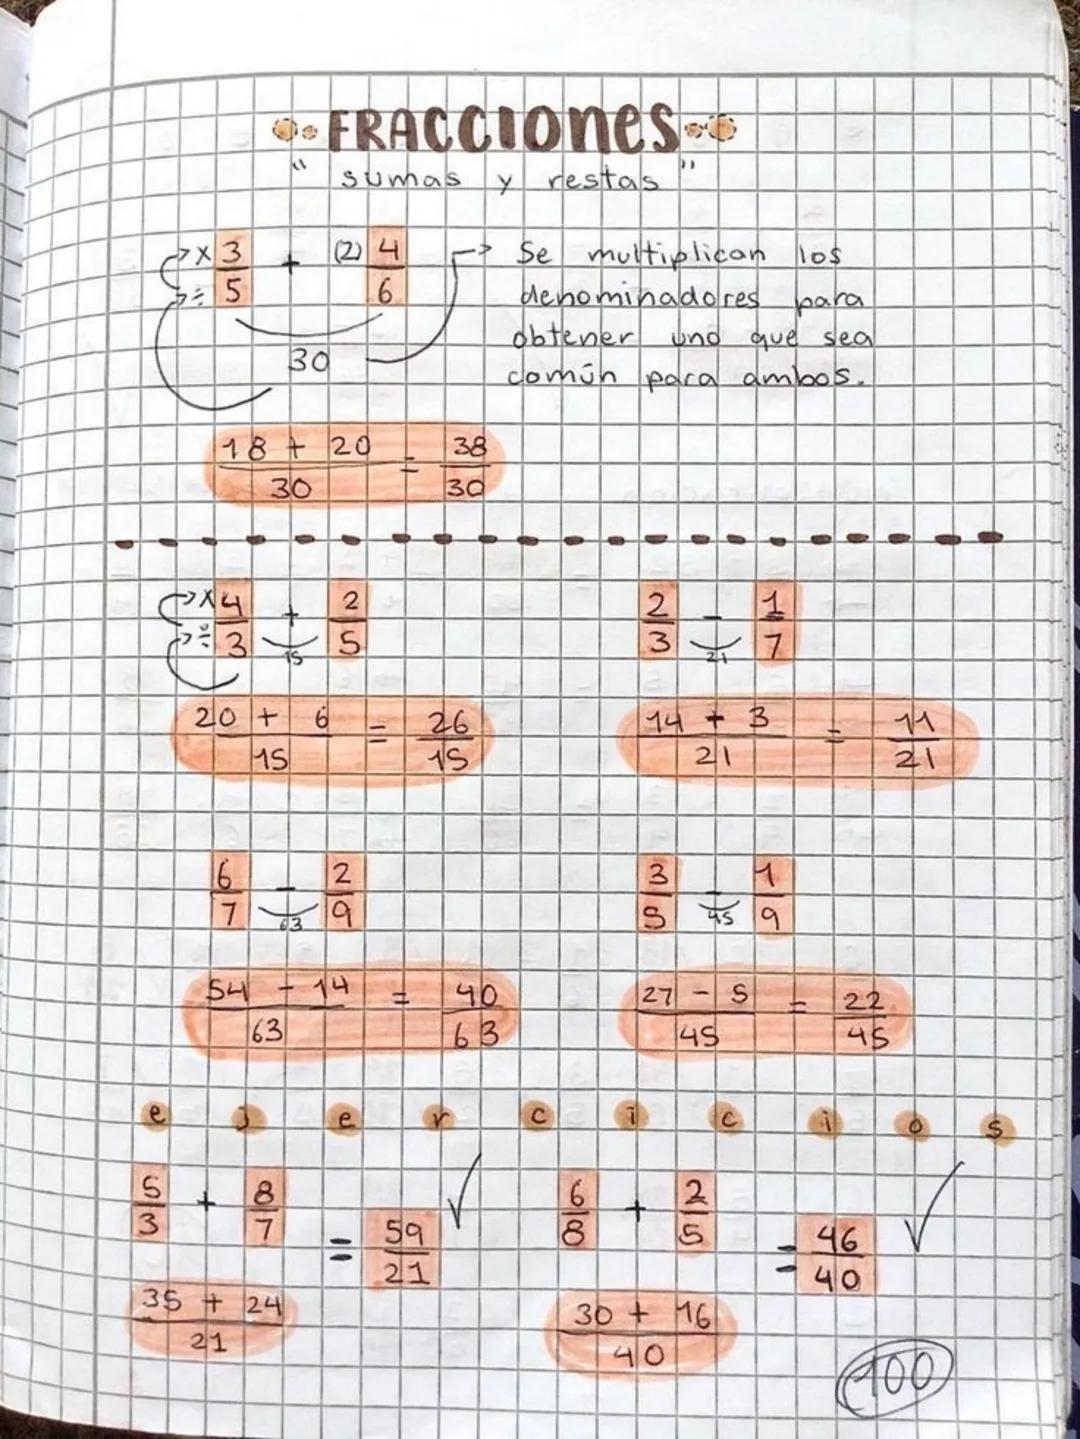 FRACCIONES
" sumas y restas "
x 3/5 + (2) 4/6
÷
30
Se multiplican los
denominadores para
obtener uno que sea
común para ambos.
18 + 20 / 30 = 38/30
x 4/3 + 2/5
÷
15
2/3 - 1/7
21
20 + 6 / 15 = 26/15
14 + 3 / 21 = 11/21
6/7 - 2/9
63
3/5 - 1/9
45
54 - 14 / 63 = 40/63
27 - 5 / 45 = 22/45
ejercicios
5/3 + 8/7 = 59/21
35 + 24 / 21
6/8 + 2/5 = 46/40
30 + 16 / 40
100